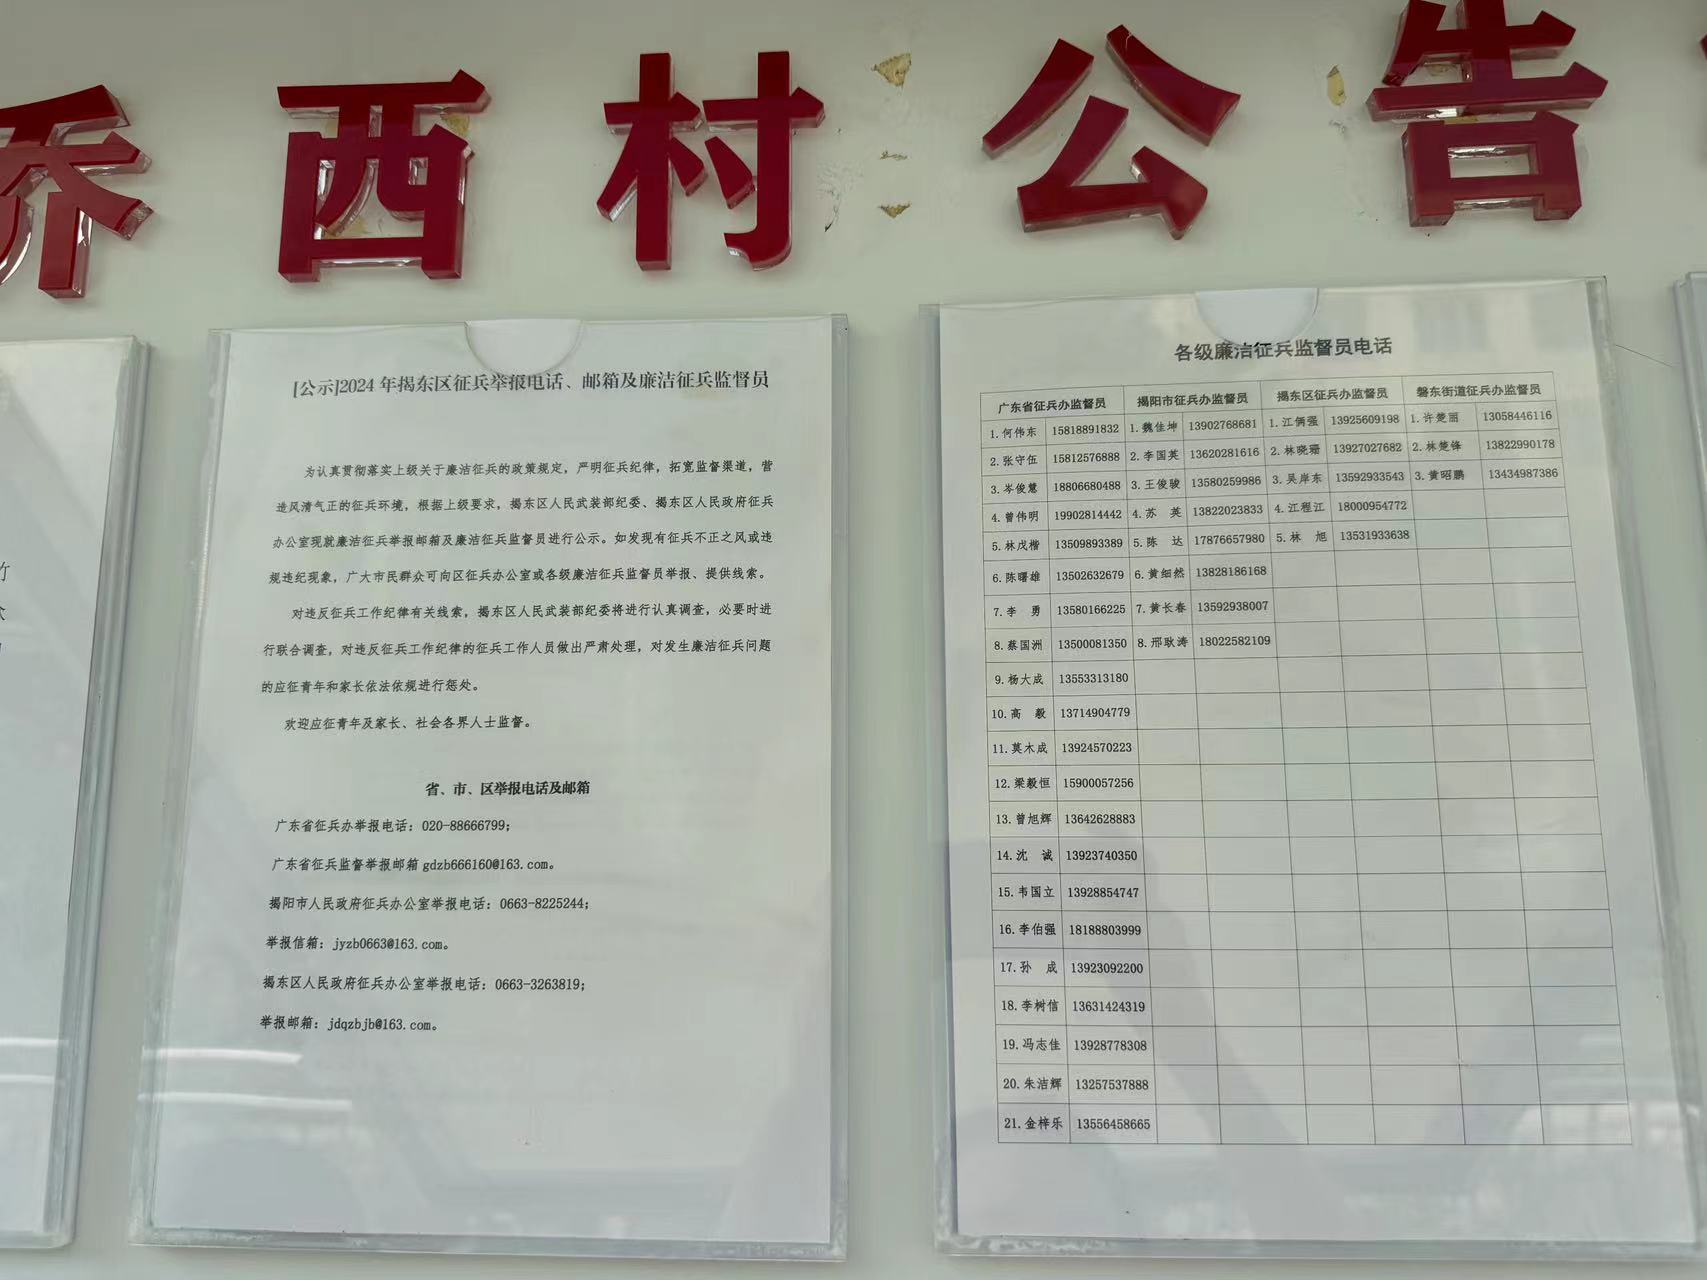 乔西村公告
[公示]2024年揭东区征兵举报电话、邮箱及廉洁征兵监督员
为认真贯彻落实上级关于廉洁征兵的政策规定，严明征兵纪律，拓宽监督渠道，营
造风清气正的征兵环境，根据上级要求，揭东区人民武装部纪委、揭东区人民政府征兵
办公室现就廉洁征兵举报邮箱及廉洁征兵监督员进行公示。如发现有征兵不正之风或违
规违纪现象，广大市民群众可向区征兵办公室或各级廉洁征兵监督员举报、提供线索。
对违反征兵工作纪律有关线索，揭东区人民武装部纪委将进行认真调查，必要时进
行联合调查，对违反征兵工作纪律的征兵工作人员做出严肃处理，对发生廉洁征兵问题
的应征青年和家长依法依规进行惩处。
欢迎应征青年及家长、社会各界人士监督。
省、市、区举报电话及邮箱
广东省征兵办举报电话：020-88666799；
广东省征兵监督举报邮箱 gdzb666160@163.com。
揭阳市人民政府征兵办公室举报电话：0663-8225244；
举报信箱：jyzb0663@163.com。
揭东区人民政府征兵办公室举报电话：0663-3263819；
举报邮箱：jdqzbjb@163.com。
各级廉洁征兵监督员电话
广东省征兵办监督员 揭阳市征兵办监督员 揭东区征兵办监督员 磐东街道征兵办监督员
1.何伟东 15818891832 1.魏佳坤 13902768681 1.江俩强 13925609198 1.许楚丽 13058446116
2.张守伍 15812576888 2.李国英 13620281616 2.林晓珊 13927027682 2.林楚锋 13822990178
3.岑俊慧 18806680488 3.王俊骏 13580259986 3.吴岸东 13592933543 3.黄昭鹏 13434987386
4.曾伟明 19902814442 4.苏 英 13822023833 4.江程江 18000954772
5.林戊楷 13509893389 5.陈 达 17876657980 5.林 旭 13531933638
6.陈曙雄 13502632679 6.黄细然 13828186168
7.李 勇 13580166225 7.黄长春 13592938007
8.蔡国洲 13500081350 8.邢耿涛 18022582109
9.杨大成 13553313180
10.高 毅 13714904779
11.莫木成 13924570223
12.梁毅恒 15900057256
13.曾旭辉 13642628883
14.沈 诚 13923740350
15.韦国立 13928854747
16.李伯强 18188803999
17.孙 成 13923092200
18.李树信 13631424319
19.冯志佳 13928778308
20.朱洁辉 13257537888
21.金梓乐 13556458665